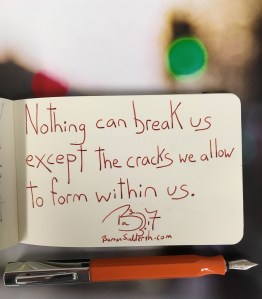 Nothing can break us
except the cracks we allow
to form within us.